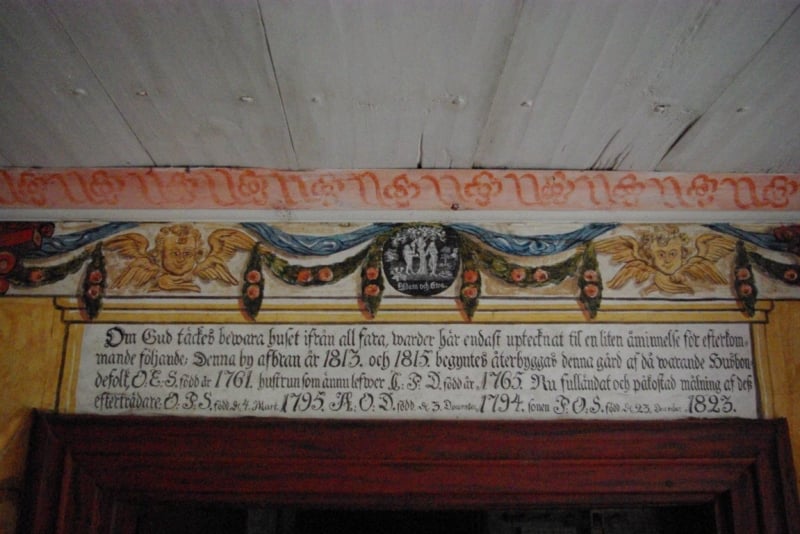 Adam och Eva.
Om Gud täckes bewara huset ifrån all fara, warder här endast uptecknat til en liten åminnelse för efterkom-
mande följande: Denna by afbran år 1813. och 1815. begyntes återbyggas denna gård af då warande Husbon-
defolk O. E. S. född år 1761. hustrun som ännu lefwer C. P. D. född år. 1765. Nu fulländat och påkostad målning af deß
efterträdare. O. P. S. född d: 4. Mart. 1795. K. O. D. född. d: 3. 1794. sonen P. O. S. född. d: 23. 1823.